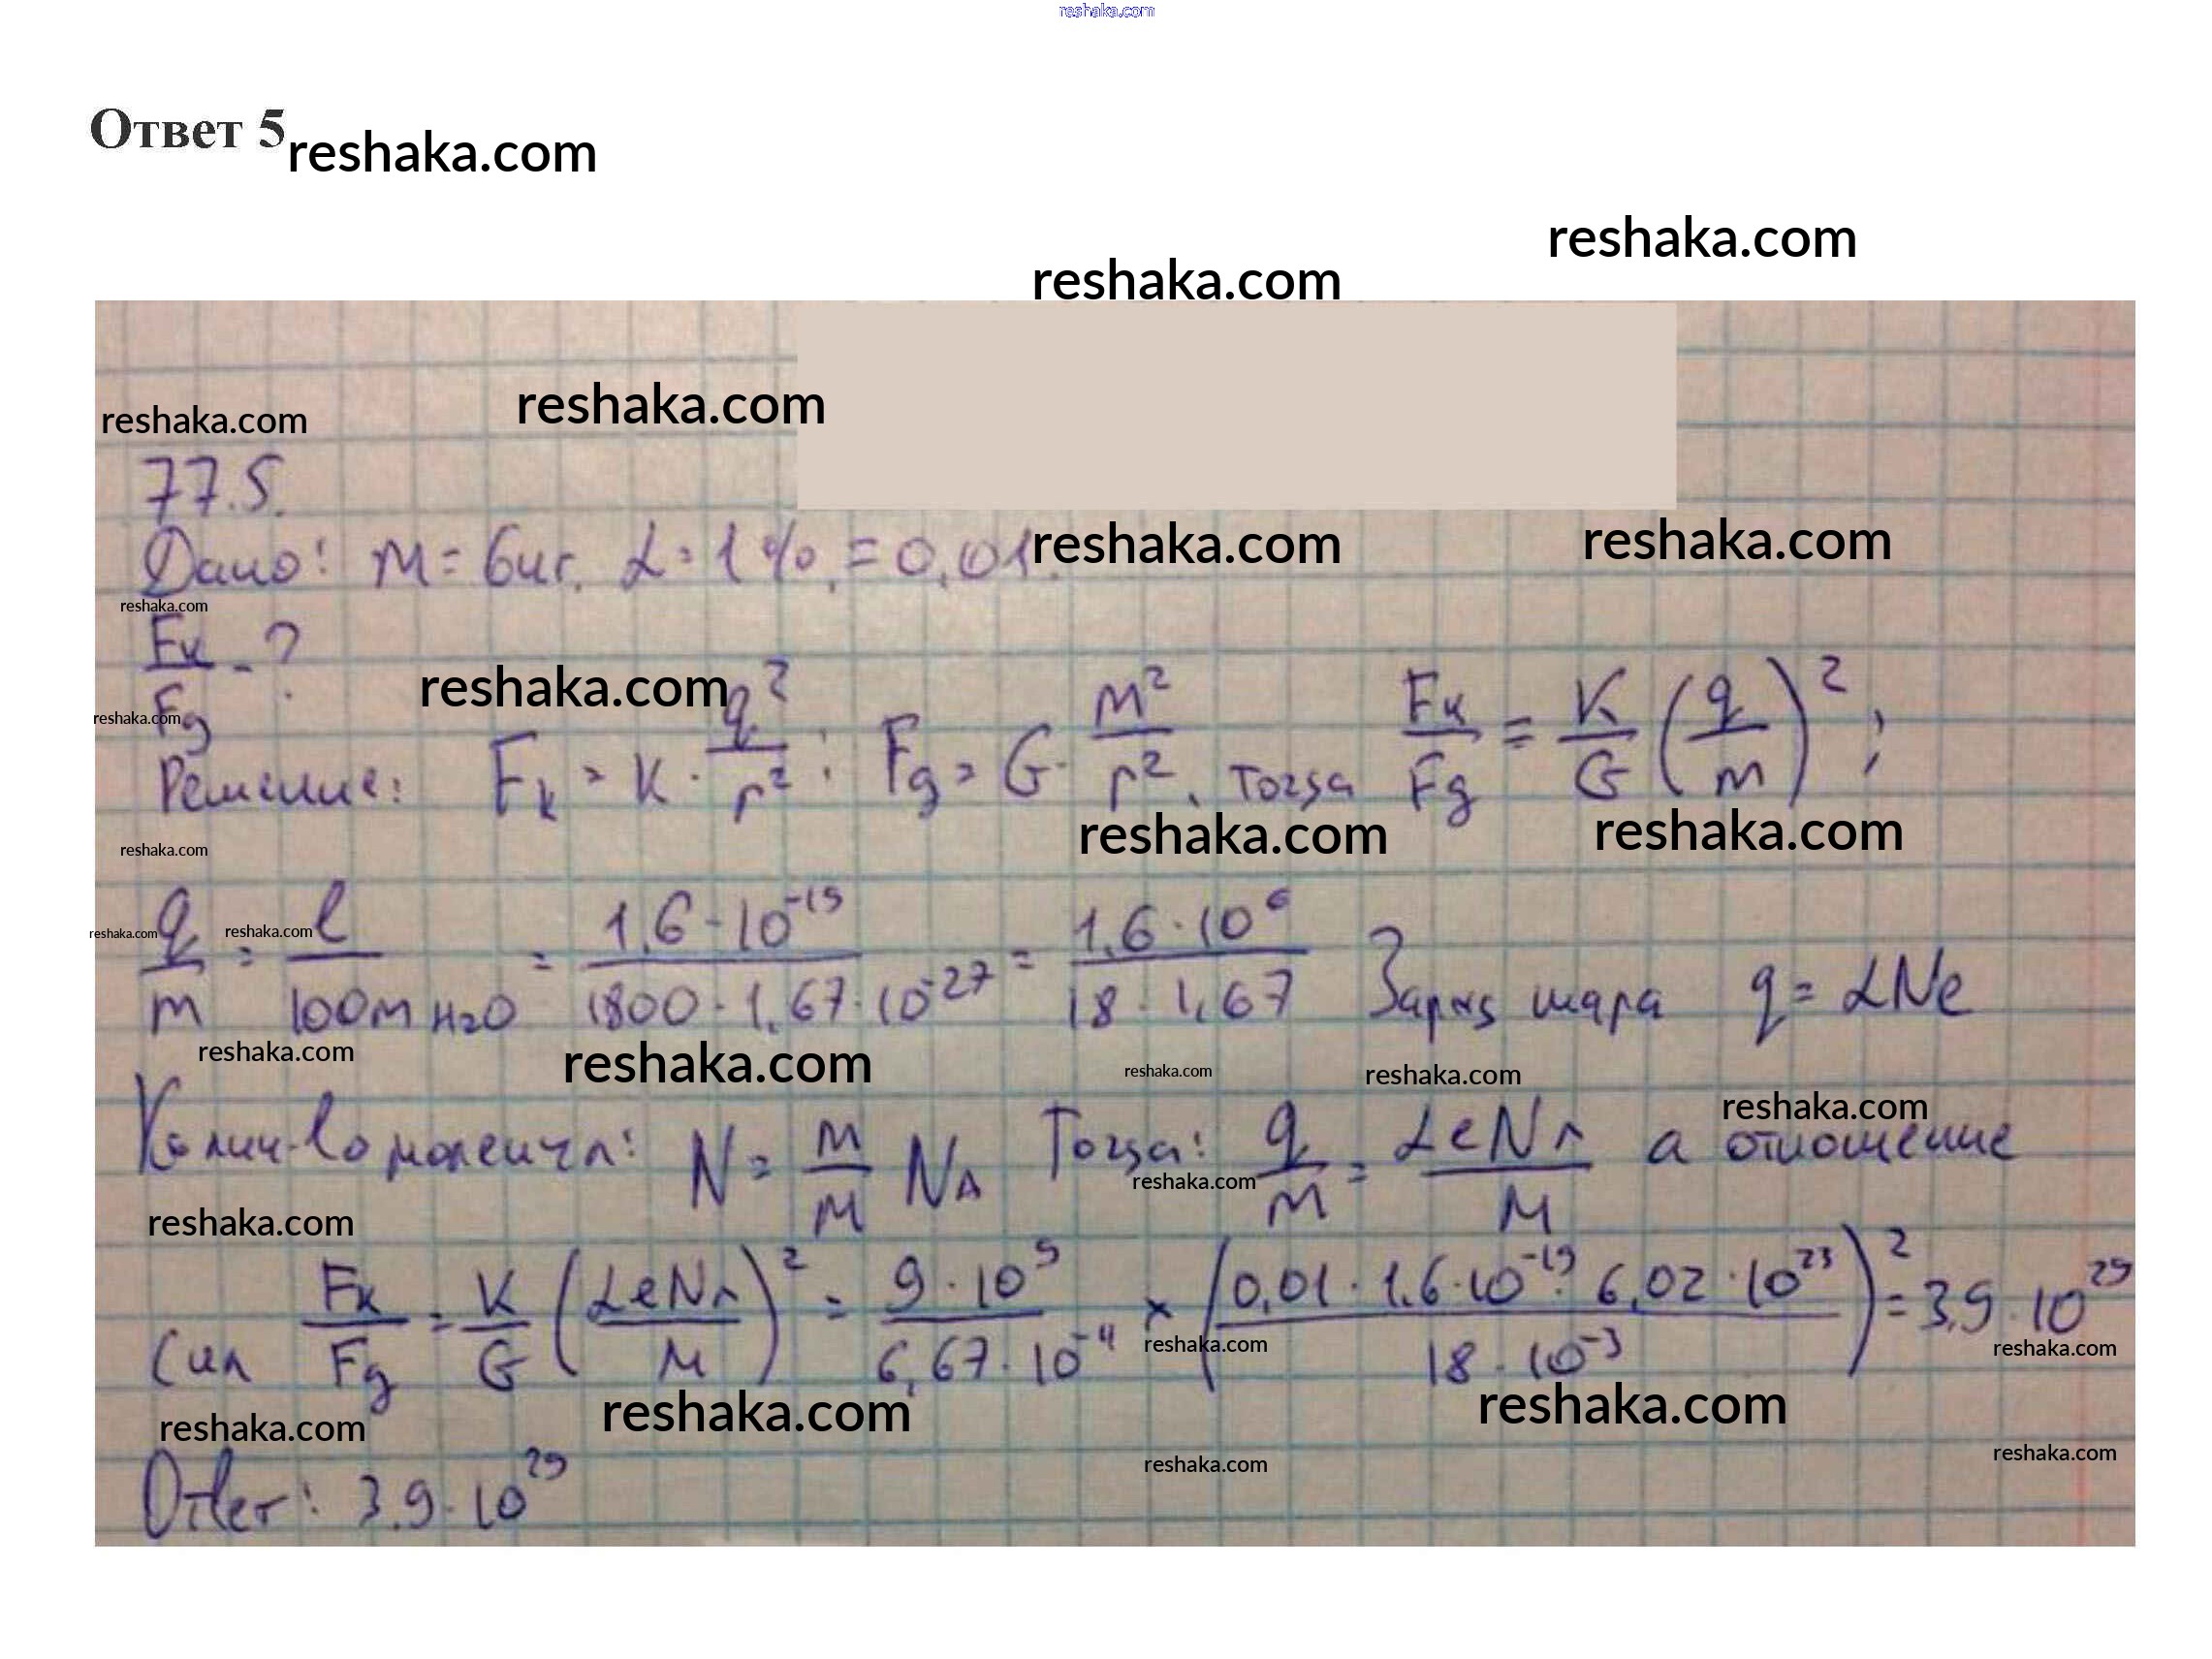 reshaka.com
Ответ 5 reshaka.com
reshaka.com
reshaka.com
reshaka.com
reshaka.com
77.5.
Дано: m = 6 кг. α = 1 %. = 0,01. reshaka.com reshaka.com
reshaka.com
Fк/Fg - ?
reshaka.com
reshaka.com
Решение: Fк = K · q²/r² ; Fg = G · m²/r². тогда Fк/Fg = K/G (q/m)²;
reshaka.com reshaka.com
reshaka.com
q/m = e/100m H2O = 1,6 · 10⁻¹⁹/1800 · 1,67 · 10⁻²⁷ = 1,6 · 10⁶/18 · 1,67 Заряд шара q = αNe
reshaka.com reshaka.com
reshaka.com reshaka.com reshaka.com reshaka.com
reshaka.com
Колич-во молекул: N = m/M NA Тогда: q/m = αeNA/M а отношение
reshaka.com
reshaka.com
сил Fк/Fg = K/G (αeNA/M)² = 9 · 10⁹/6,67 · 10⁻¹¹ × (0,01 · 1,6 · 10⁻¹⁹ · 6,02 · 10²³/18 · 10⁻³)² = 3,9 · 10²⁹
reshaka.com reshaka.com
reshaka.com reshaka.com reshaka.com
reshaka.com reshaka.com
Ответ: 3.9 · 10²⁹